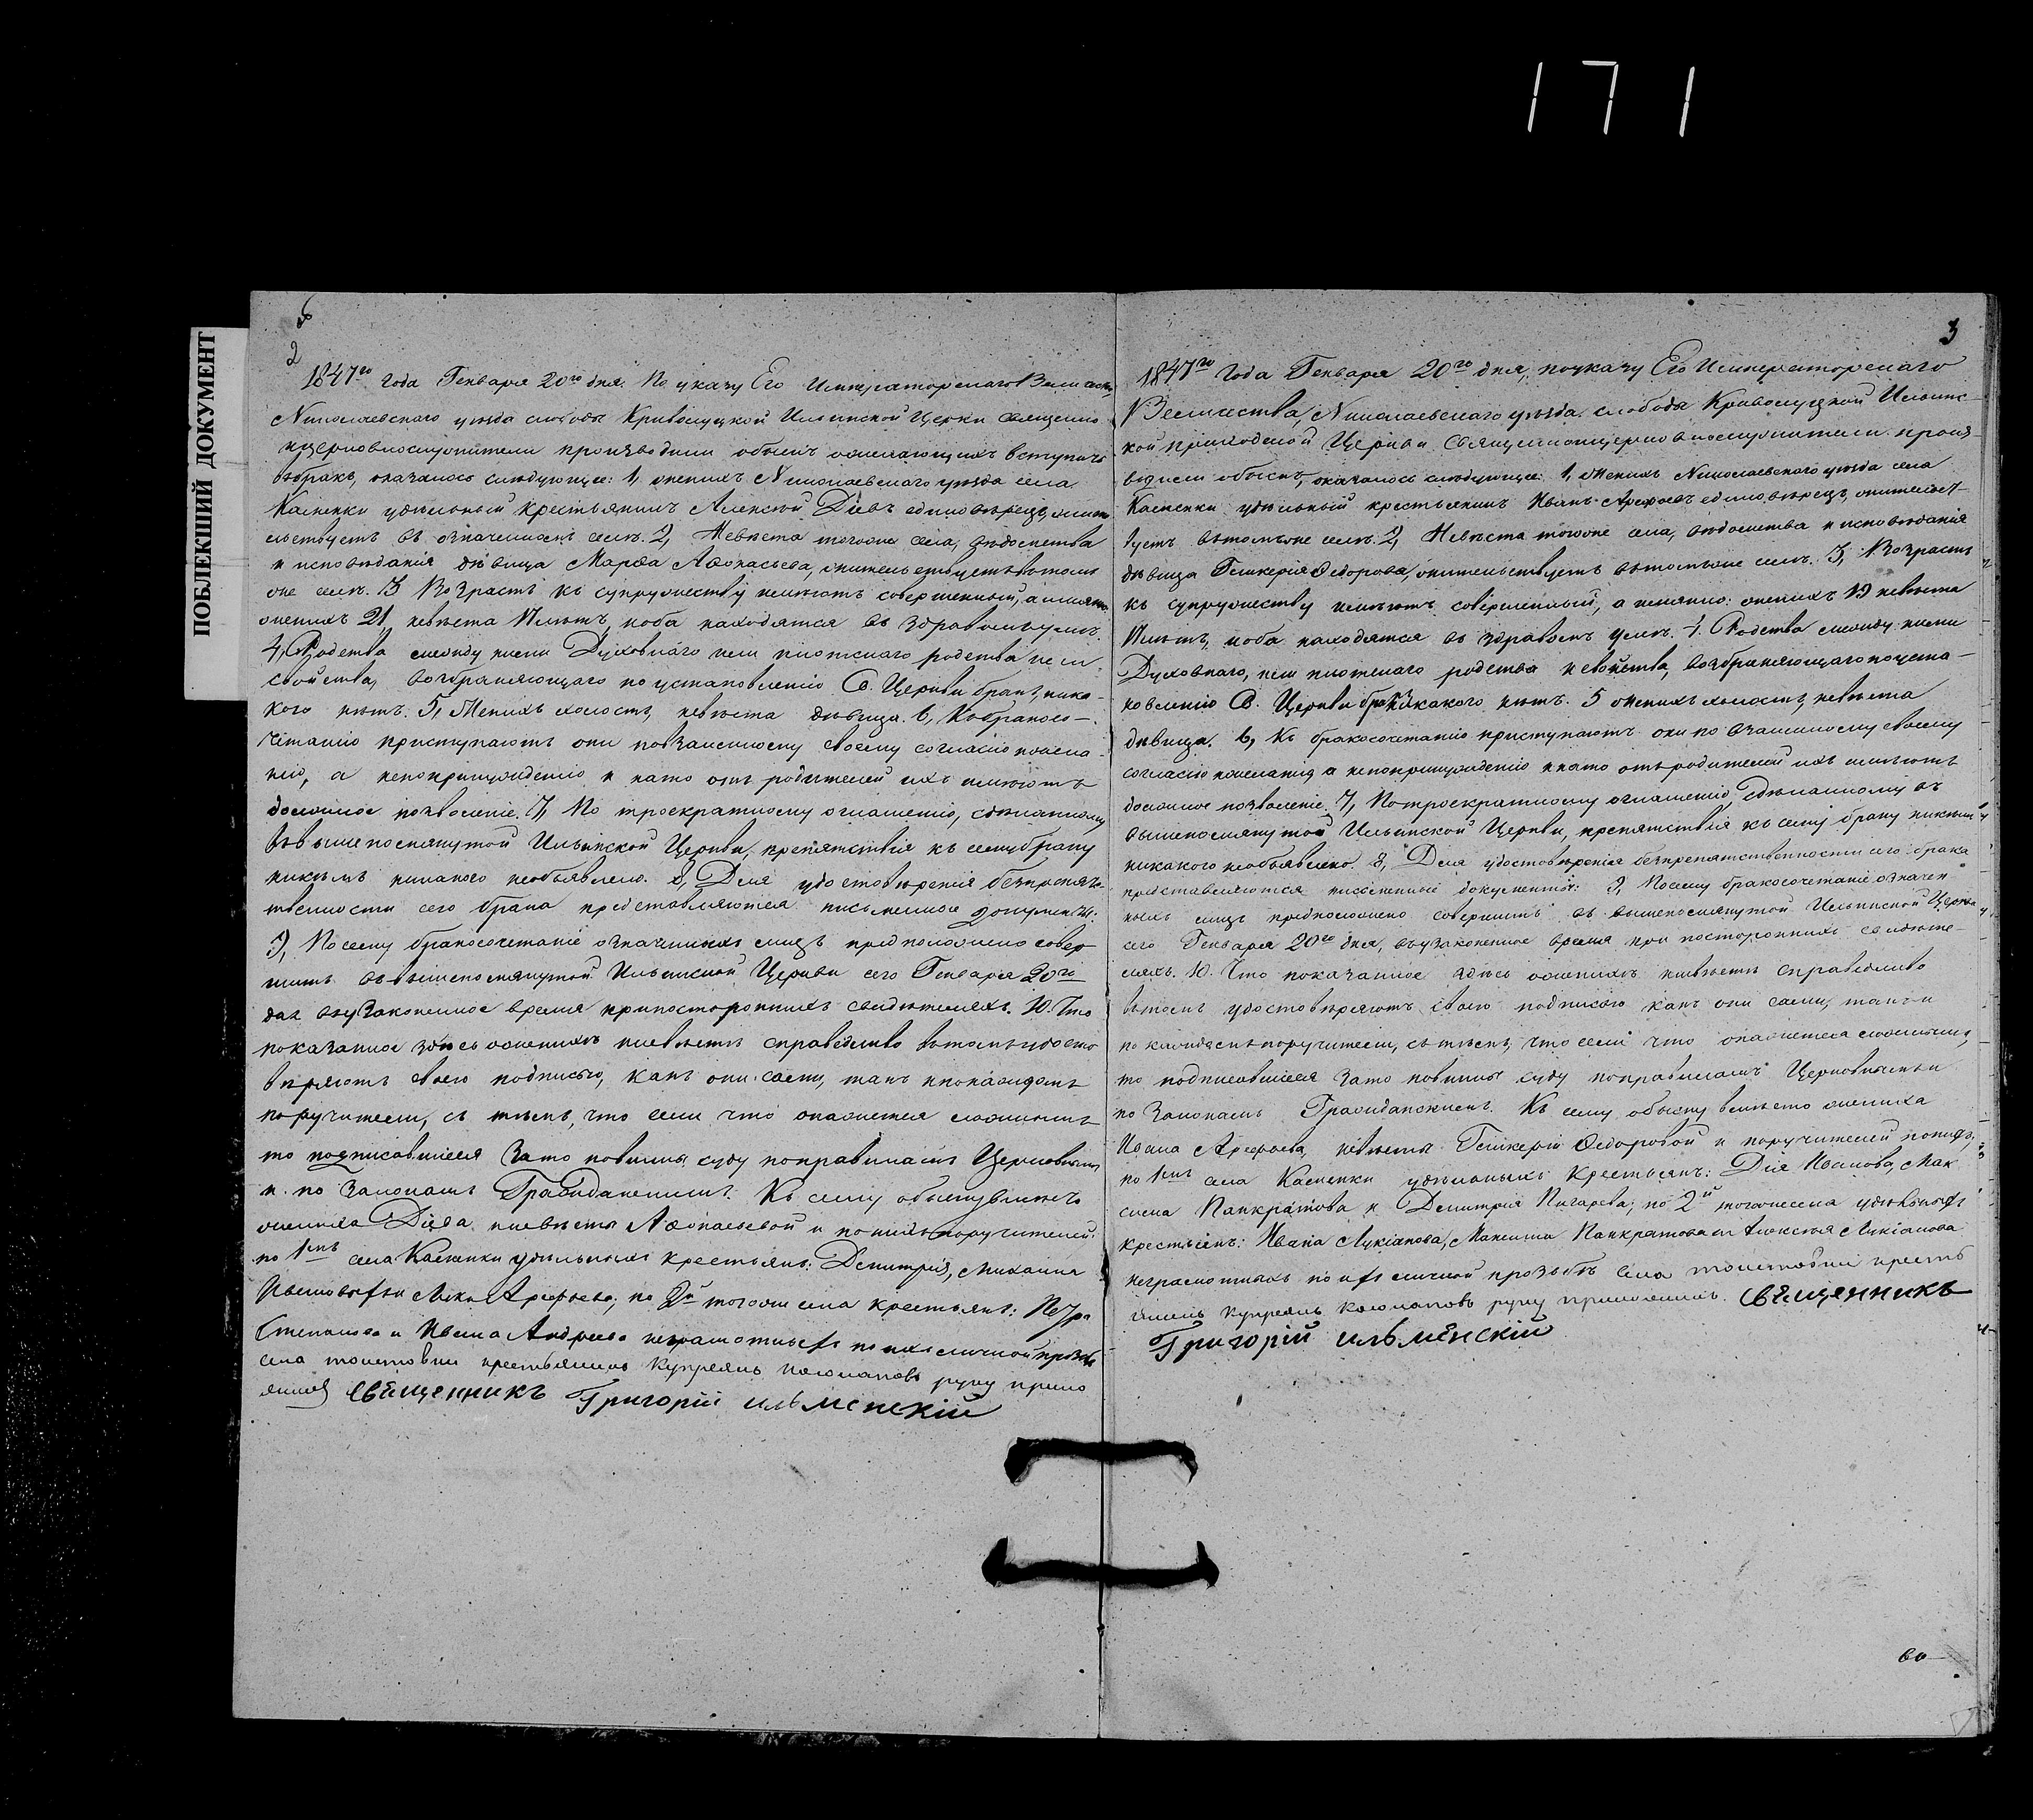 171
ПОБЛЕКШИЙ ДОКУМЕНТ
2
1847го года Генваря 20го дня. По указу Его Императорскаго Величества,
Николаевскаго уѣзда слободы Криволуцкой Ильинской Церкви священно
ицерковнослужители производили обыскъ ожелающихъ вступить
вбракъ, оказалось слѣдующее: 1, женихъ Николаевскаго уѣзда села
Каменки удѣльный крестьянинъ Алексѣй Діевъ единовѣрецъ, жите
льствуетъ въ означенномъ селѣ. 2, Невѣста тогоже села, вѣдомства
и исповѣданія дѣвица Марѳа Аѳонасьева, жительствуетъ втомъ
же селѣ. 3 Возрастъ къ супружеству имѣютъ совершенный, а именно
женихъ 21, невѣста 17 лѣтъ, иоба находятся въ здравомъ умѣ.
4, Родства между ними Духовнаго или плотскаго родства и
свойства, возбраняющаго по установленію Св. Церкви бракъ, ника-
кого нѣтъ. 5, Женихъ холостъ, невѣста дѣвица. 6, Кобракосо-
четанію приступаютъ они повзаимному своему согласію ижела-
нію, а непопринужденію и нато отъ родителей ихъ имѣютъ
должное позволеніе. 7, По троекратному оглашенію, сдѣланному
ввышепомянутой Ильинской Церкви, препятствія къ сему браку
никѣмъ никакого необъявлено. 8, Для удостовѣренія безпрепят-
твенности сего брака представляются письменные документы:
9, Посему бракосочетаніе означенныхъ лицъ предположено совер-
шить ввышепомянутой Ильинской Церкви сего Генваря 20го
дня вузаконенное время припостороннихъ свидѣтеляхъ. 10. Что
показанное здѣсь ожених иневѣстѣ справедливо втомъ удосто
вѣряютъ своею подписью, какъ они сами, такъ ипокаждомъ
поручители, съ тѣмъ, что если что окажется ложнымъ
то подписавшіеся зато повинны суду поправиламъ Церковнымъ
и по законамъ Гражданскимъ. Къ сему обыску вмѣсто
жениха Діева иневѣсты Аѳонасьевой и понихъ поручителей:
по 1мъ села Каменки удѣльныхъ крестьянъ: Дмитрія, Михаила
Ивановыхъ и Арефьева, по 2й тогоже села крестьянъ: Петра
Степанова и Ивана Андреева неграмотныхъ по ихъ личной прозьбѣ
села крестьянинъ Купреянъ руку прило
жилъ Священникъ Григорій ильменскій
3
1847го Года Генваря 20го дня, поуказу Его Императорскаго
Величества, Николаевскаго уѣзда слободы Криволуцкой Ильинс-
кой приходской Церкви Священноицерковнослужители произ-
водили обыскъ, оказалось слѣдующее: 1, Женихъ Николаевскаго уѣзда села
Каменки удѣльный крестьянинъ Иванъ Арефьевъ единовѣрецъ, жительст-
вуетъ втомъже селѣ. 2, Невѣста тогоже села, вѣдомства и исповѣданія
дѣвица Гликерія Ѳедорова, жительствуетъ втомъже селѣ. 3, Возрастъ
къ супружеству имѣютъ совершенный, а именно: женихъ 19 невѣста
17 лѣтъ, иоба находятся въ здравомъ умѣ. 4. Родства между ними
Духовнаго, или плотскаго родства исвойства, возбраняющаго поуста-
новленію Св. Церкви бракъ никакого нѣтъ. 5 женихъ холостъ, невѣста
дѣвица. 6, Къ бракосочетанію приступаютъ они по взаимному своему
согласію ижеланію, а непопринужденію инато отъ родителей ихъ имѣютъ
должное позволеніе. 7, Потроекратному оглашенію, сдѣланному въ
вышепомянутой Ильинской Церкви, препятствія къ сему браку никѣмъ
никакого необъявлено. 8, Для удостовѣренія безпрепятственности сего брака
представляются письменные документы: 9, Посему бракосочетаніе означен
ныхъ лицъ предположено совершить въ вышепомянутой Ильинской Церкви
сего Генваря 20го дня, вузаконенное время при постороннихъ свидѣте-
ляхъ. 10. Что показанное здѣсь оженихѣ иневѣстѣ справедливо
втомъ удостовѣряютъ своею подписью какъ они сами, такъ и
по каждомъ поручители, сътѣмъ, что если что окажется ложнымъ,
то подписавшіеся зато повинны суду поправиламъ Церковнымъ и
по Законамъ Гражданскимъ. Къ сему обыску вмѣсто жениха
Ивана Арефьева, невѣсты Гликеріи Ѳедоровой и поручителей понихъ,
по 1мъ села Каменки удѣльныхъ крестьянъ: Дія Иванова, Мак
сима Панкратова и Дмитрія Пичарева; по 2й тогожесела удѣльныхъ
крестьянъ: Ивана Лукіанова, Максима Панкратова и Алексѣя Лукіанова
неграмотныхъ по ихъ личной прозьбѣ села кресть
янинъ Купреянъ руку приложилъ. Священникъ
Григорій ильменскій
во